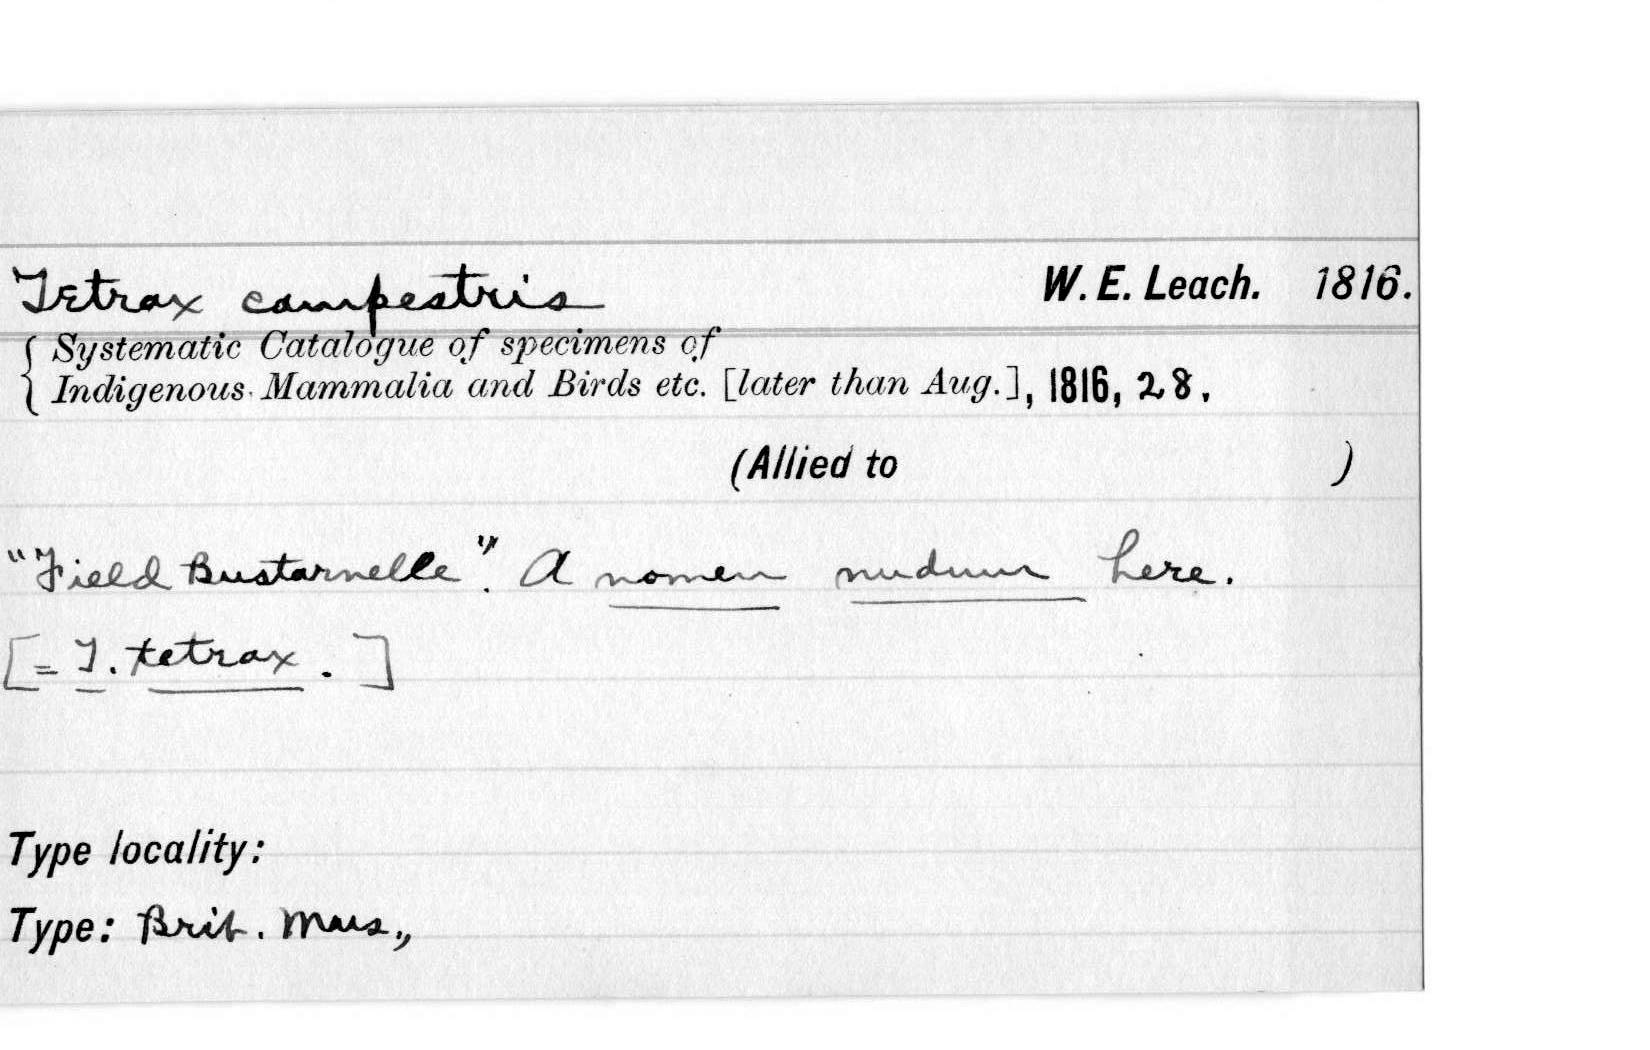 Tetrax campestris W. E. Leach. 1816.
{ Systematic Catalogue of specimens of
Indigenous Mammalia and Birds etc. [later than Aug.], 1816, 28.
(Allied to )
"Field Bustarnelle". A nomen nudum here.
[= T. tetrax.]
Type locality:
Type: Brit. Mus.,